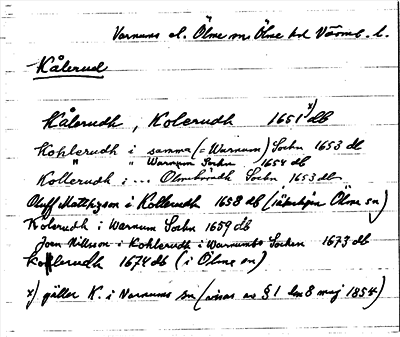 Varnums el. Ölme sn, Ölme hd Värml. l.
Kålerud
Kålerudh, Kolerudh 1651 x) db
Kohlerudh i samma (= Warnum) Sochn 1653 db
" " Warnum Sochn 1654 db
Kollerudh i ... Olmehäradh Sochn 1653 db
Oluff Mattsson i Kollerudh 1658 db (säkerligen Ölme sn)
Kolerudh i Warnum Sochn 1659 db
Jon Nillsson i Kohlerudh i Warnumbs Sochen 1673 db
Kollerudh 1674 db (i Ölme sn)
x) gäller K. i Varnums sn (visas av § 1 den 8 maj 1854)